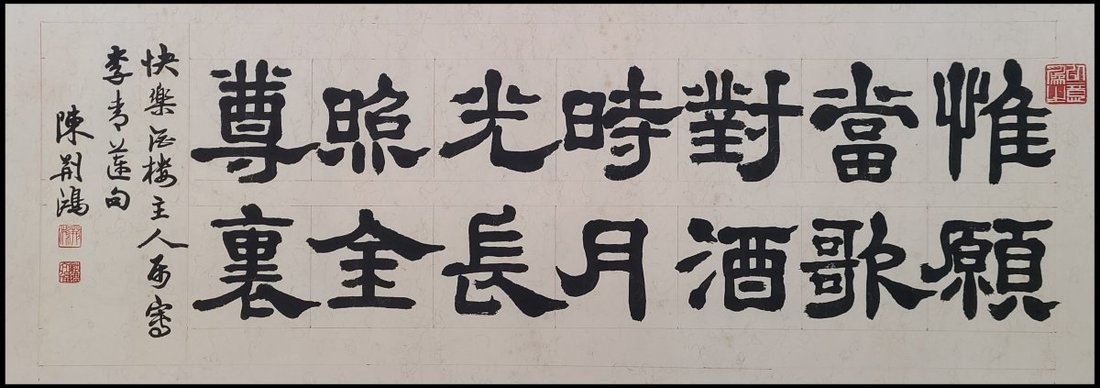 惟願
當歌
對酒
時月
光長
照金
尊裏
快樂酒楼主人属寫
李青蓮句
陳荆鴻